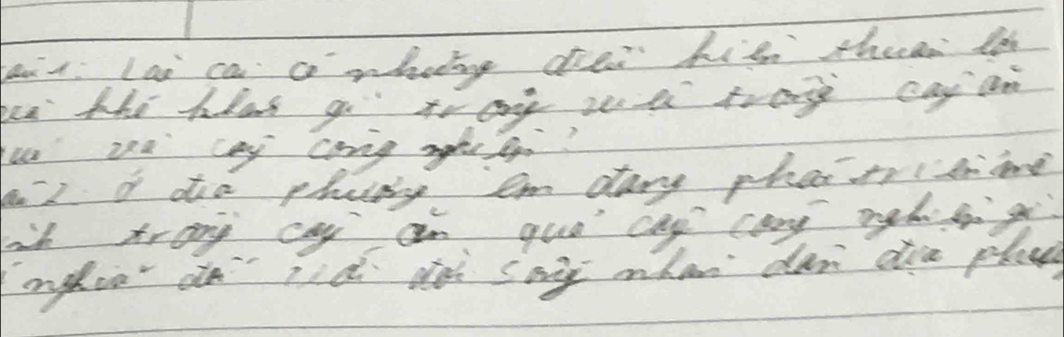 Lai cai có những điều kiện thuận lợi
khó khăn gì trong việc trồng cây ăn
và cây công nghiệp?
ở địa phương em đang phát triển mô
trồng cây ăn quả cây công nghiệp gì
nghĩa đối với đời sống nhân dân địa